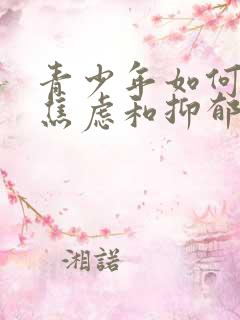 青少年如何
焦虑和抑郁
湘諾